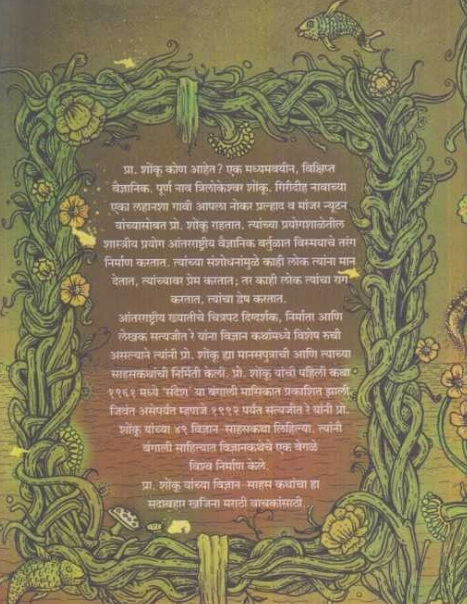 प्रा. शोंकू कोण आहेत? एक मध्यमवयीन, विक्षिप्त
वैज्ञानिक. पूर्ण नाव त्रिलोकेश्वर शोंकू. गिरीदीह नावाच्या
एका लहानशा गावी आपला नोकर प्रल्हाद व मांजर न्यूटन
यांच्यासोबत प्रो. शोंकू राहतात. त्यांच्या प्रयोगशाळेतील
शास्त्रीय प्रयोग आंतरराष्ट्रीय वैज्ञानिक वर्तुळात विस्मयाचे तरंग
निर्माण करतात. त्यांच्या संशोधनांमुळे काही लोक त्यांना मान
देतात, त्यांच्यावर प्रेम करतात; तर काही लोक त्यांचा राग
करतात, त्यांचा द्वेष करतात.
आंतरराष्ट्रीय ख्यातीचे चित्रपट दिग्दर्शक, निर्माता आणि
लेखक सत्यजीत रे यांना विज्ञान कथांमध्ये विशेष रुची
असल्याने त्यांनी प्रो. शोंकू ह्या मानसपुत्राची आणि त्याच्या
साहसकथांची निर्मिती केली. प्रो. शोंकू यांची पहिली कथा
१९६१ मध्ये 'संदेश' या बंगाली मासिकात प्रकाशित झाली.
जिवंत असेपर्यंत म्हणजे १९९२ पर्यंत सत्यजीत रे यांनी प्रो.
शोंकू यांच्या ४९ विज्ञान-साहसकथा लिहिल्या. त्यांनी
बंगाली साहित्यात विज्ञानकथेचे एक वेगळे
विश्व निर्माण केले.
प्रा. शोंकू यांच्या विज्ञान-साहस कथांचा हा
सदाबहार खजिना मराठी वाचकांसाठी.